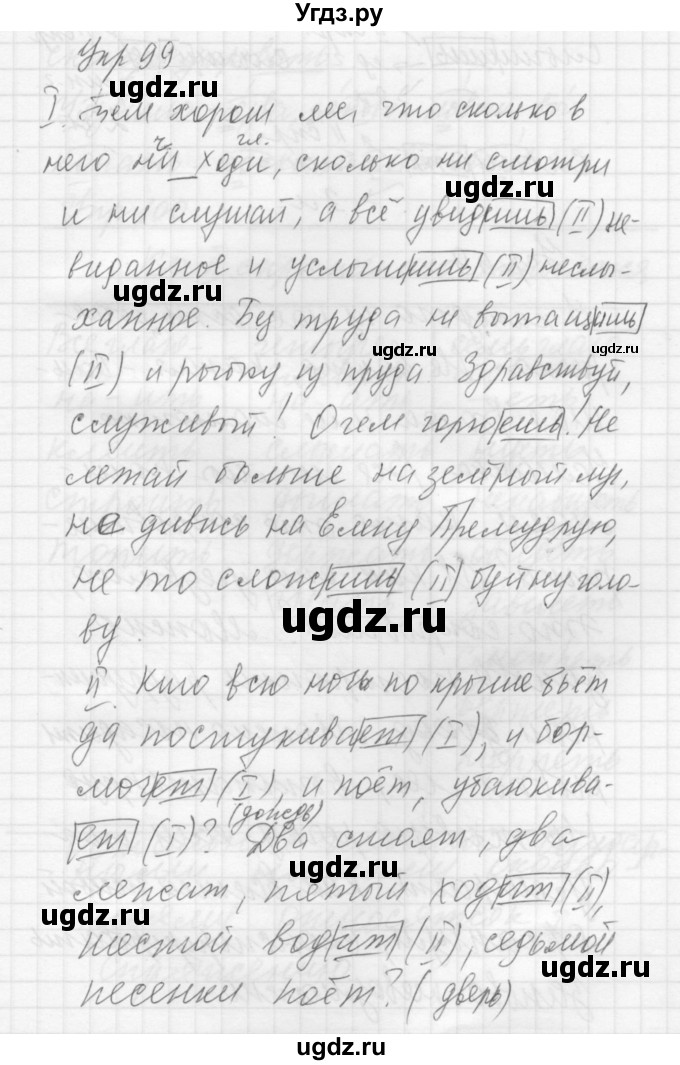 Угдз.ру
Упр 99
ugdz.ru
I. Чем хорош лес, что сколько в
ч. гл.
него ни ходи, сколько ни смотри
ugdz.ru
и ни слушай, а всё увидишь (II) не-
виданное и услышишь (II) неслы-
ugdz.ru
ханное. Без труда не вытащишь
ugdz.ru ugdz.ru
(II) и рыбку из пруда. Здравствуй,
служивый! О чем горюешь! Не
лежай больше на зелёный луг,
не дивись на Елену Премудрую,
не то сложишь (II) буйну голо-
ugdz.ru
ву.
II. Кто всю ночь по крыше бьёт
да постукивает (I), и бор-
ugdz.ru
мочет (I), и поёт, убаюкива-
(дождь)
ет (I)? Два стоят, два
ugdz.ru
лежат, пятый ходит (II),
ugdz.ru
шестой водит (II), седьмой
ugdz.ru
песенки поёт? (дверь)
ugdz.ru